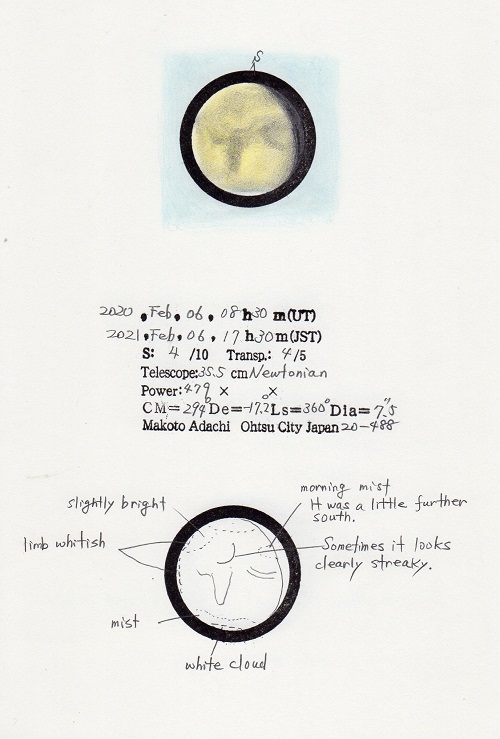 S
2020, Feb, 06, 08h30m(UT)
2021, Feb, 06, 17h30m(JST)
S: 4 /10 Transp.: 4/5
Telescope: 35.5 cm Newtonian
Power: 479 × ×
CM=294° De=-17.2 Ls=360° Dia=7.5"
Makoto Adachi Ohtsu City Japan 20-488
morning mist
It was a little further
south.
slightly bright
limb whitish
Sometimes it looks
clearly streaky.
mist
white cloud